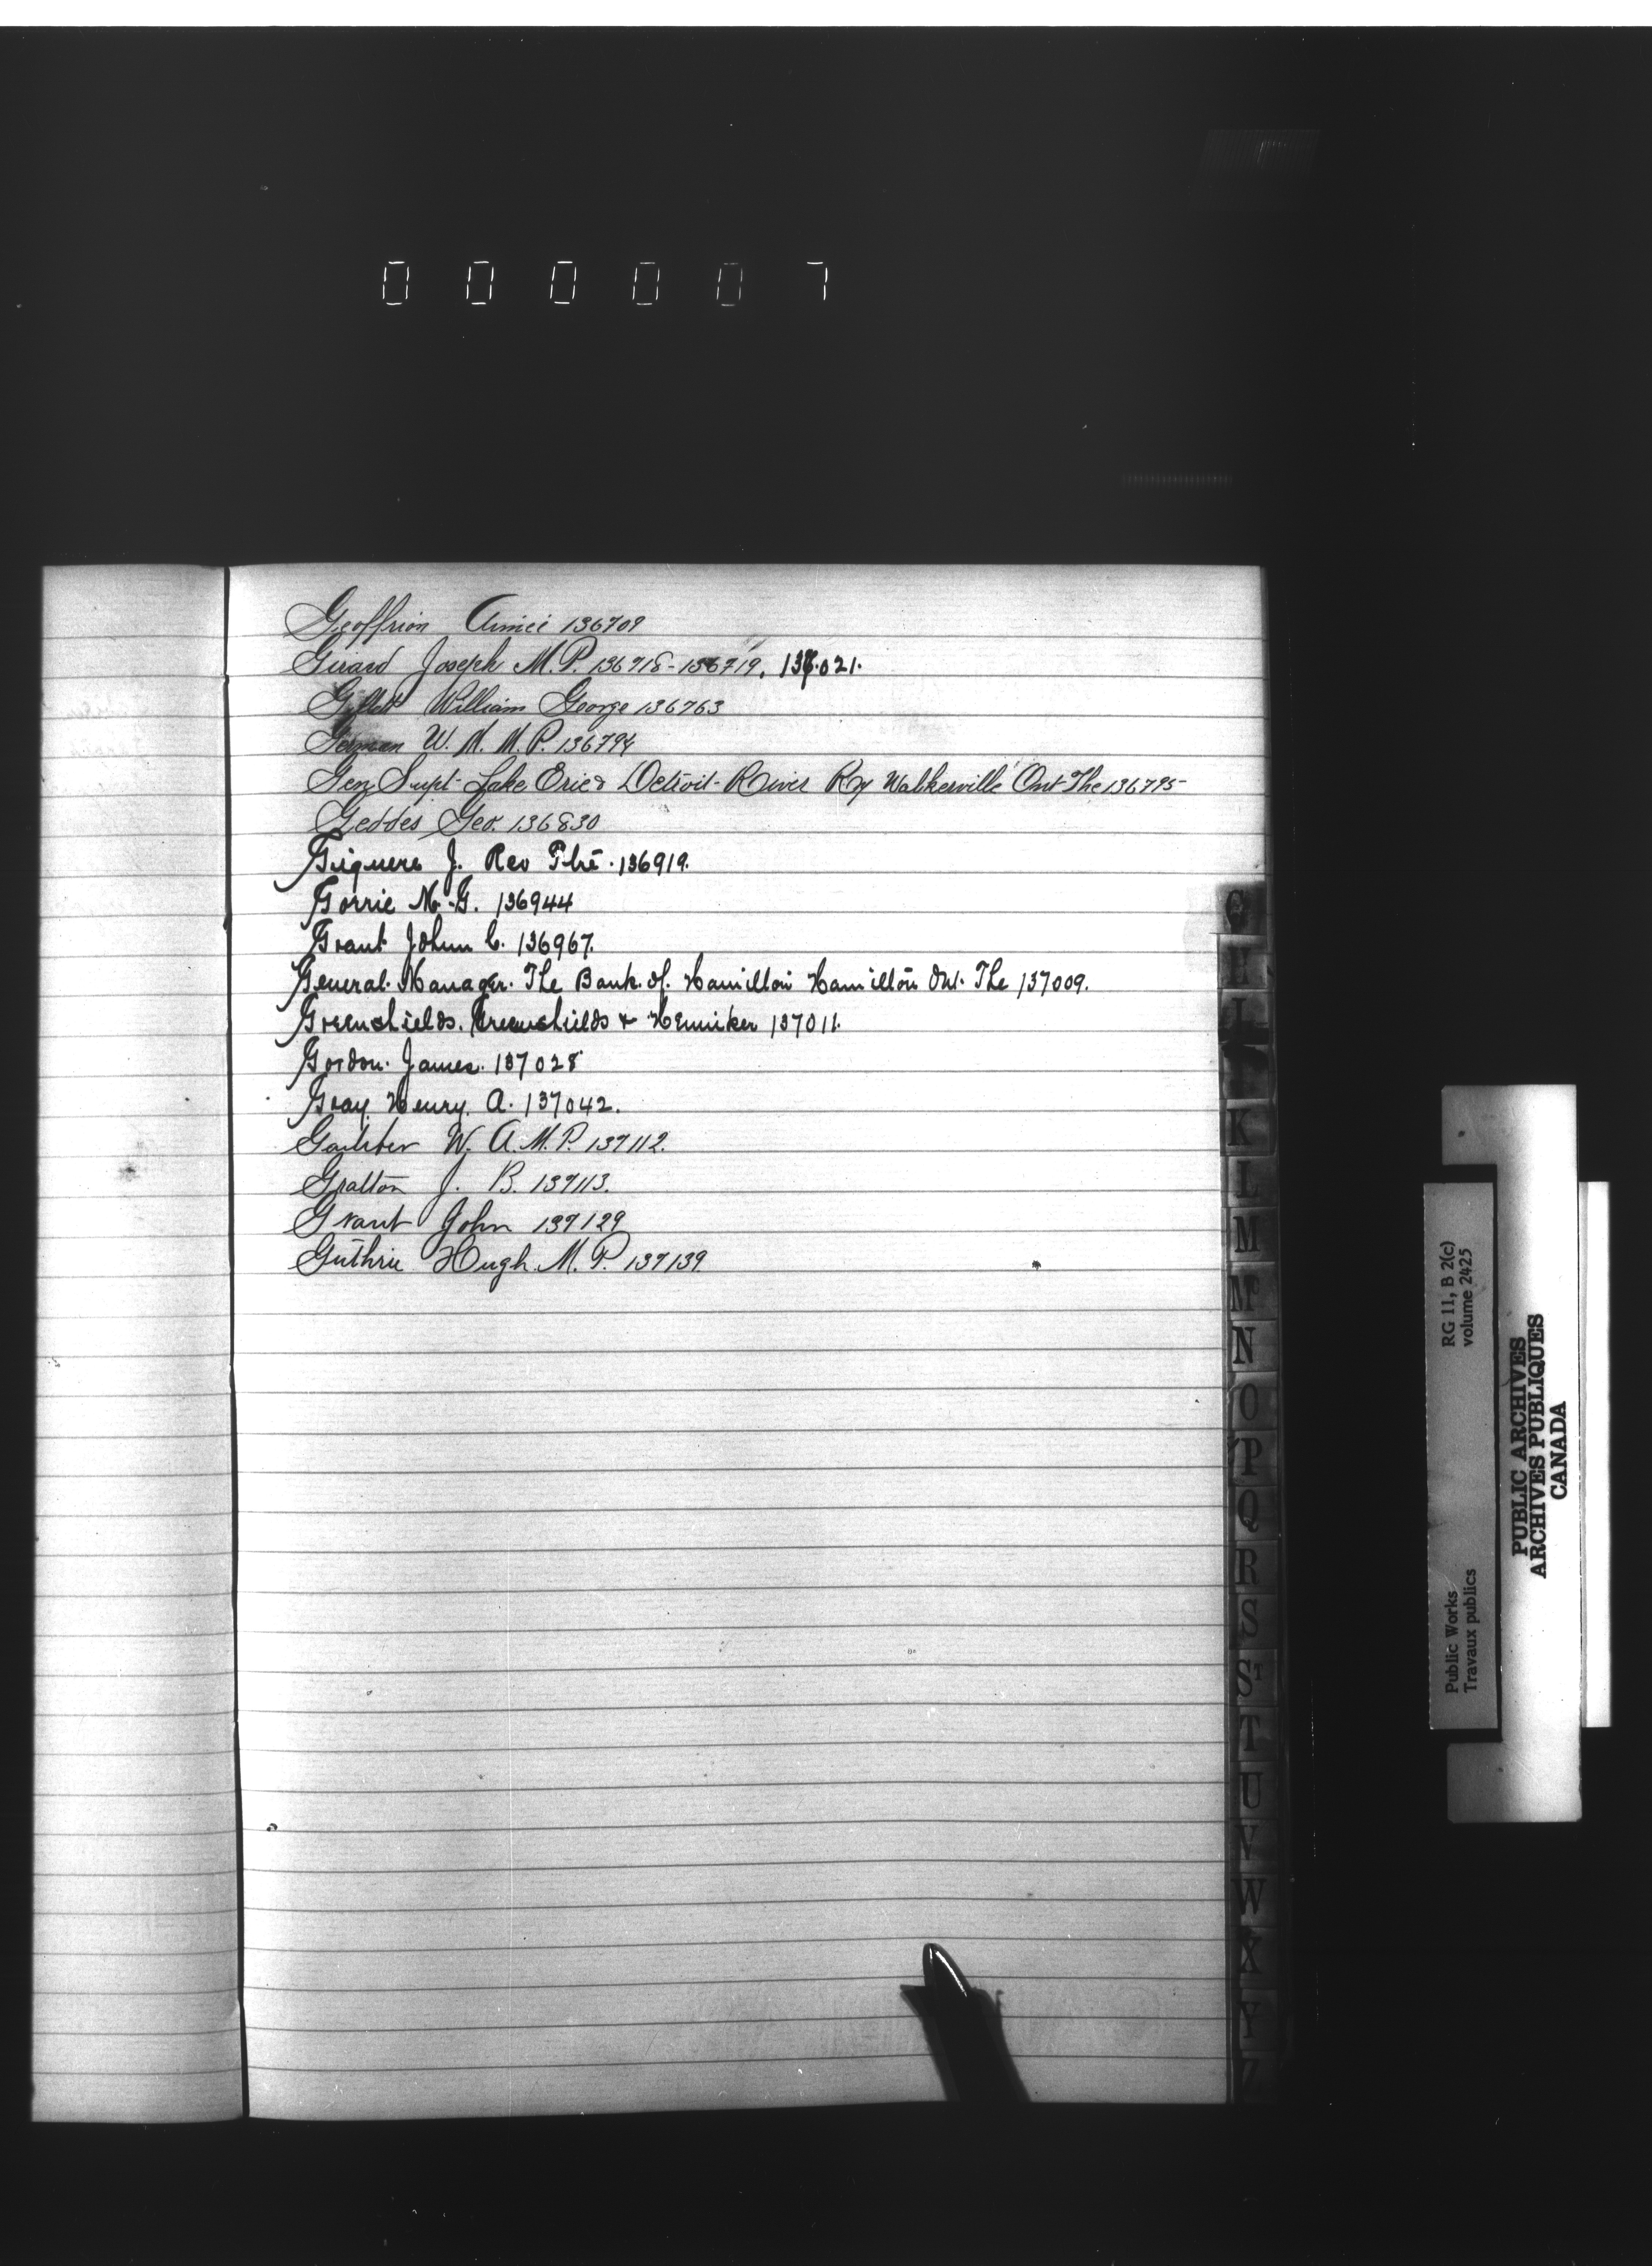 000007
Geoffrion Aimée 136709
Girard Joseph M.P. 136718-136719, 137.021.
Gillett William George 136763
German W. M. M.P. 136794
Gen Supt Lake Erie & Detroit River Ry Walkerville Ont The 136795
Geddes Geo. 136830
Giguere J. Rev Ptre. 136919.
Gorrie M. G. 136944
Grant John C. 136967.
General Manager. The Bank of Hamilton Hamilton Ont. The 137009.
Greenshields. Greenshields & Henniker 137011.
Gordon. James. 137028
Gray Henry. A. 137042.
W. A. M.P. 137112.
Gratton J. B. 137113.
Grant John 137129
Guthrie Hugh M.P. 137139
G
H
I
K
L
M
Mc
N
O
P
Q
R
S
ST
T
U
V
W
X
Y
Z
Public Works
Travaux publics
RG 11, B 2(c)
volume 2425
PUBLIC ARCHIVES
ARCHIVES PUBLIQUES
CANADA